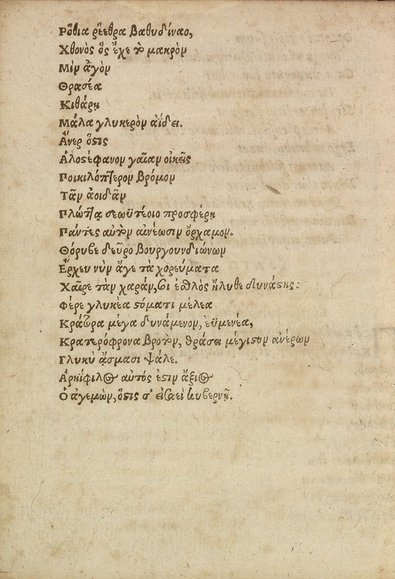 Ρόθια ῥέεθρα βαθυδίναο,
Χθονὸς ὃς ἔχε τὸ μακρὸν
Μὶν ἄγὸν
Θρασέα
Κιθάρη
Μάλα γλυκερὸν ἀίδει.
Ἄνερ ὅστις
Αλοστέφανον γαῖαν οἰκεῖς
Ποικιλόπτερον βρόμον
Τᾶν ἀοιδᾶν
Πλώτζα σεωϋτέοιο προσφέρη
Πάντες αὐτὸν αἰνέωσιν ὄρχαμον.
Θόρυβε δεῦρο Βουργουνδιώνων
Ἔρχευ νῦν ἄγε τὰ χορεύματα
Χαῖρε τὰν χαράν, ὅτι ἐσθλὸς ἤλυθε δυνάστης:
Φέρε γλυκέα στόματι μέλεα
Κράτορα μέγα δυνάμενον, εὐμενέα,
Κρατερόφρονα βροτὸν, θράσει μέγιστον ἀνέρων
Γλυκὺ ἄσμασι ψάλε.
Ἀρηΐφιλος αὐτός ἐστιν ἄξιος
Ὁ ἀγεμὼν, ὅστις σ' εἰσαεὶ κυβερνῇ.